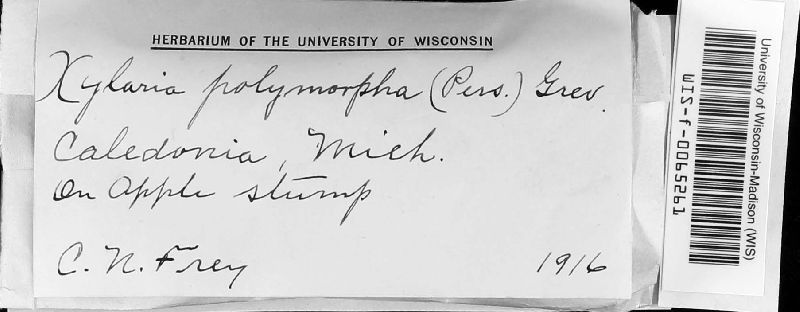 HERBARIUM OF THE UNIVERSITY OF WISCONSIN
Xylaria polymorpha (Pers.) Grev.
Caledonia, Mich.
On Apple stump
C. N. Frey 1916
University of Wisconsin-Madison (WIS)
WIS-f-0065261